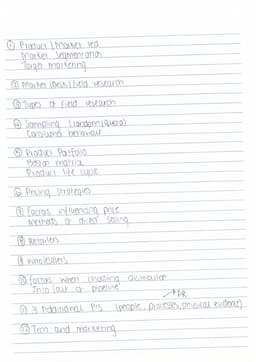 ① Product / Market led
Market segmentation
Target marketing
② Market Desk / field research
③ Types of field research
④ Sampling (random / quota)
Consumer behaviour
⑤ Product Portfolio
Boston matrix
Product life cycle
⑥ Pricing strategies
⑦ Factors influencing price
methods of direct selling
⑧ Retailers
⑨ Wholesalers
⑩ Factors when choosing distribution
Into/out of pipeline → PR
⑪ 3 Additional P's (people, processes, physical evidence)
⑫ Tech and marketing